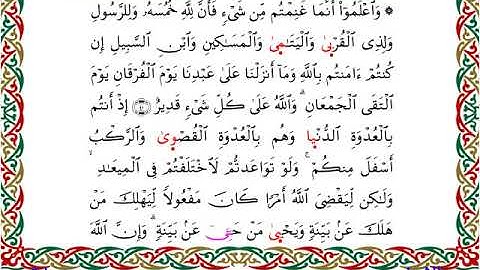 ۞ وَٱعْلَمُوٓا۟ أَنَّمَا غَنِمْتُم مِّن شَىْءٍ فَأَنَّ لِلَّهِ خُمُسَهُۥ وَلِلرَّسُولِ
وَلِذِى ٱلْقُرْبَىٰ وَٱلْيَتَـٰمَىٰ وَٱلْمَسَـٰكِينِ وَٱبْنِ ٱلسَّبِيلِ إِن
كُنتُمْ ءَامَنتُم بِٱللَّهِ وَمَآ أَنزَلْنَا عَلَىٰ عَبْدِنَا يَوْمَ ٱلْفُرْقَانِ يَوْمَ
ٱلْتَقَى ٱلْجَمْعَانِ ۗ وَٱللَّهُ عَلَىٰ كُلِّ شَىْءٍ قَدِيرٌ ۝٤١ إِذْ أَنتُم
بِٱلْعُدْوَةِ ٱلدُّنْيَا وَهُم بِٱلْعُدْوَةِ ٱلْقُصْوَىٰ وَٱلرَّكْبُ
أَسْفَلَ مِنكُمْ ۚ وَلَوْ تَوَاعَدتُّمْ لَٱخْتَلَفْتُمْ فِى ٱلْمِيعَـٰدِ ۙ
وَلَـٰكِن لِّيَقْضِىَ ٱللَّهُ أَمْرًا كَانَ مَفْعُولًا لِّيَهْلِكَ مَنْ
هَلَكَ عَنۢ بَيِّنَةٍ وَيَحْيَىٰ مَنْ حَىَّ عَنۢ بَيِّنَةٍ ۗ وَإِنَّ ٱللَّهَ